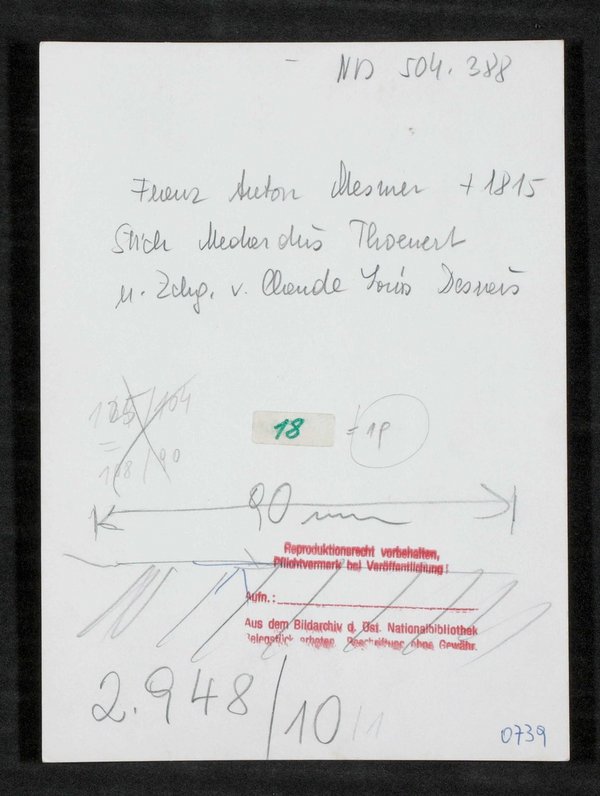 NB 504.388
Franz Anton Mesmer +1815
Stich Medardus Thoenert
n. Zchg. v. Claude Louis Desrais
18
90 mm
Reproduktionsrecht vorbehalten,
Pflichtvermerk bei Veröffentlichung!
Aufn.:
Aus dem Bildarchiv d. Öst. Nationalbibliothek
Belegstück erbeten. Beschriftung ohne Gewähr.
2.948/10/1
0739